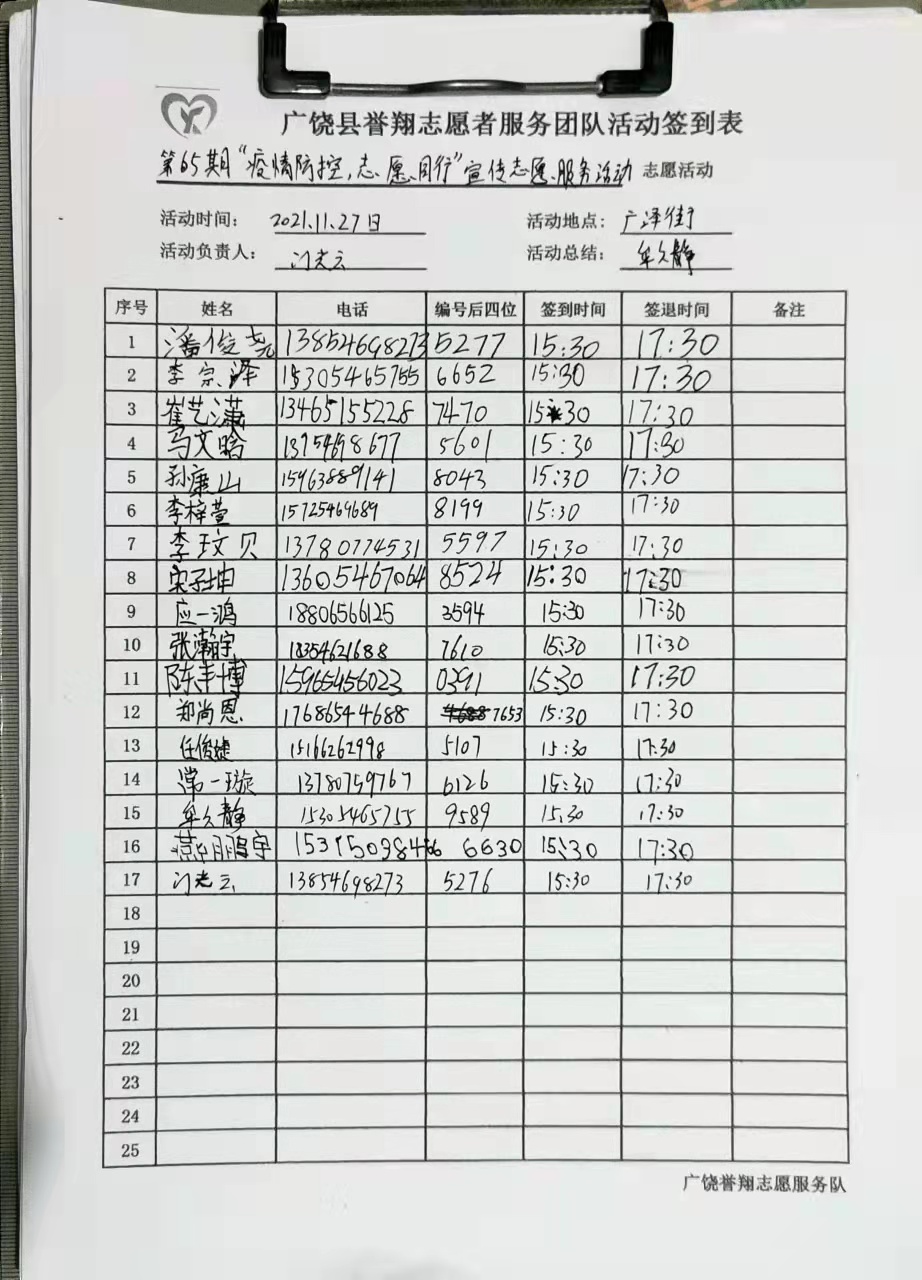 广饶县誉翔志愿者服务团队活动签到表
第65期“疫情防控,志愿同行”宣传志愿服务活动 志愿活动
活动时间: 2021.11.27日 活动地点: 广泽街
活动负责人: 门光云 活动总结: 牟久静
序号 姓名 电话 编号后四位 签到时间 签退时间 备注
1 潘俊尧 13854698273 5277 15:30 17:30
2 李宗泽 15305465755 6652 15:30 17:30
3 崔艺潇 13465155228 7470 15:30 17:30
4 马文晗 13754698677 5601 15:30 17:30
5 孙康山 15963889141 8043 15:30 17:30
6 李梓萱 15725469689 8199 15:30 17:30
7 李玟贝 13780774531 5597 15:30 17:30
8 宋子坤 13605467064 8524 15:30 17:30
9 应一鸿 18806566125 3594 15:30 17:30
10 张瀚宇 18354621688 7610 15:30 17:30
11 陈丰博 15965456023 0391 15:30 17:30
12 郑尚恩 17686544688 7653 15:30 17:30
13 任俊婕 15166262998 5107 15:30 17:30
14 常一璇 13780759767 6126 15:30 17:30
15 牟久静 15305465755 9589 15:30 17:30
16 燕鹏宇 6630 15:30 17:30
17 门光云 13854698273 5276 15:30 17:30
18
19
20
21
22
23
24
25
广饶誉翔志愿服务队